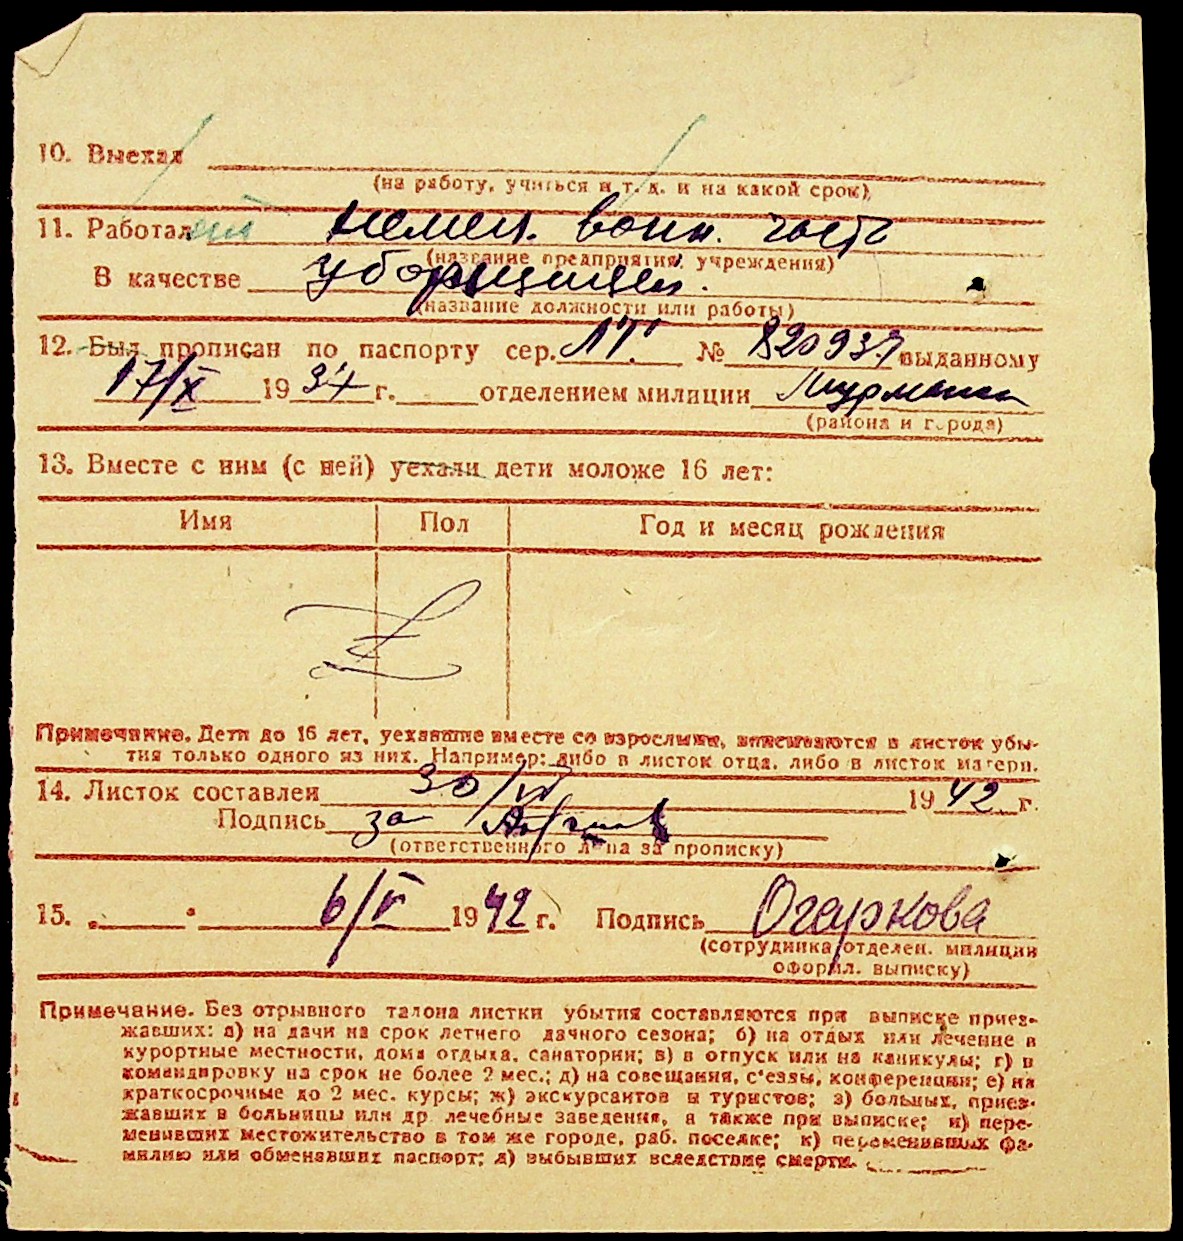 10. Выехал
(на работу, учиться и т. д. и на какой срок)
11. Работал немец. воин. часть
(название предприятия, учреждения)
В качестве уборщицей.
(название должности или работы)
12. Был прописан по паспорту сер. ЛТ № 820937 выданному
17/X 1937 г. отделением милиции Мурманск
(района и города)
13. Вместе с ним (с ней) уехали дети моложе 16 лет:
Имя Пол Год и месяц рождения
Примечание. Дети до 16 лет, уехавшие вместе со взрослыми, вписываются в листок убы-
тия только одного из них. Например: либо в листок отца, либо в листок матери.
14. Листок составлен 30/VI 1942 г.
Подпись за
(ответственного лица за прописку)
15. 6/V 1942 г. Подпись Огаркова
(сотрудника отделен. милиции
оформл. выписку)
Примечание. Без отрывного талона листки убытия составляются при выписке приез-
жавших: а) на дачи на срок летнего дачного сезона; б) на отдых или лечение в
курортные местности, дома отдыха, санатории; в) в отпуск или на каникулы; г) в
командировку на срок не более 2 мес.; д) на совещания, с'езды, конференции; е) на
краткосрочные до 2 мес. курсы; ж) экскурсантов и туристов; з) больных, приез-
жавших в больницы или др. лечебные заведения, а также при выписке; и) пере-
менивших местожительство в том же городе, раб. поселке; к) переменивших фа-
милию или обменявших паспорт; л) выбывших вследствие смерти.